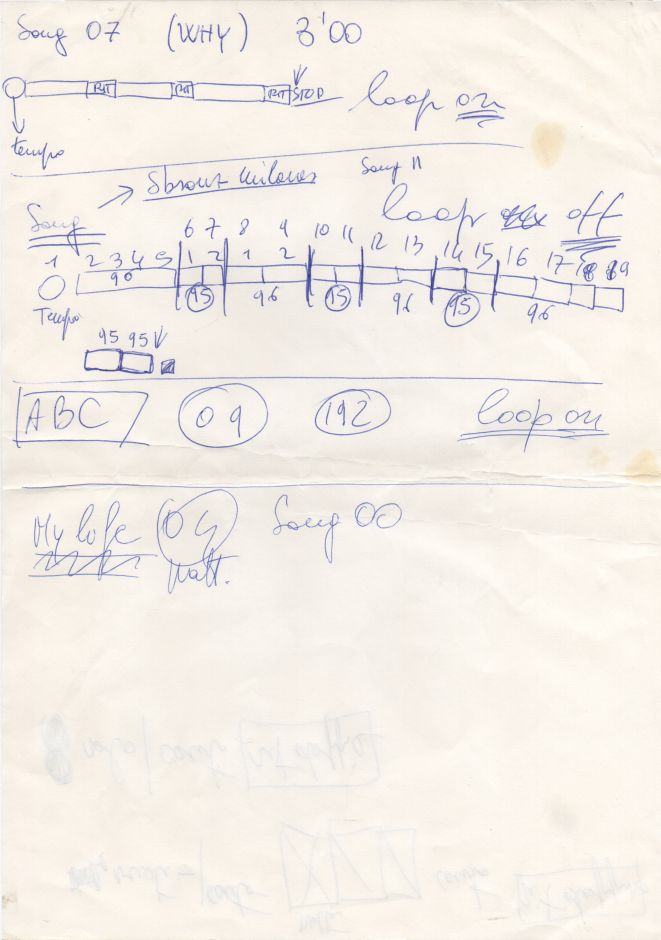 Song 07 (WHY) 3'00
RIT RIT RIT STOP loop on
tempo
Song 11
Song loop off
1 2 3 4 5 6 7 8 9 10 11 12 13 14 15 16 17 18 19
90 1 2 1 2
95 96 95 96 95 96
Tempo
95 95
ABC 09 192 loop on
My life 04 Song 00
patt.